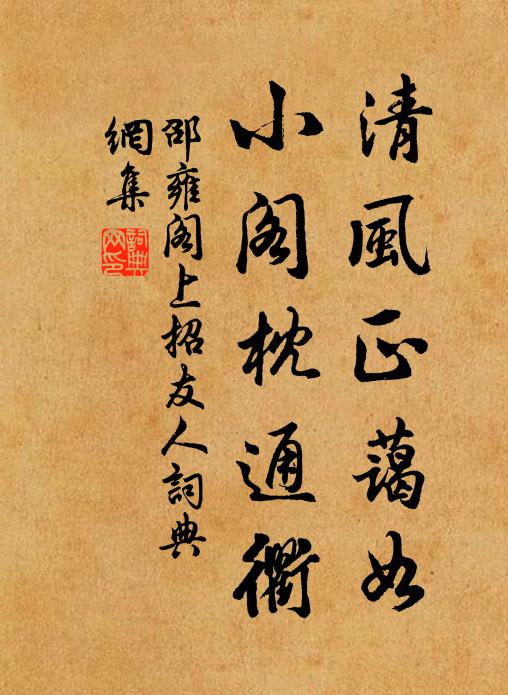 清風正藹如
小閣枕通衢
邵雍閣上招友人詞典
網集
詞典網印